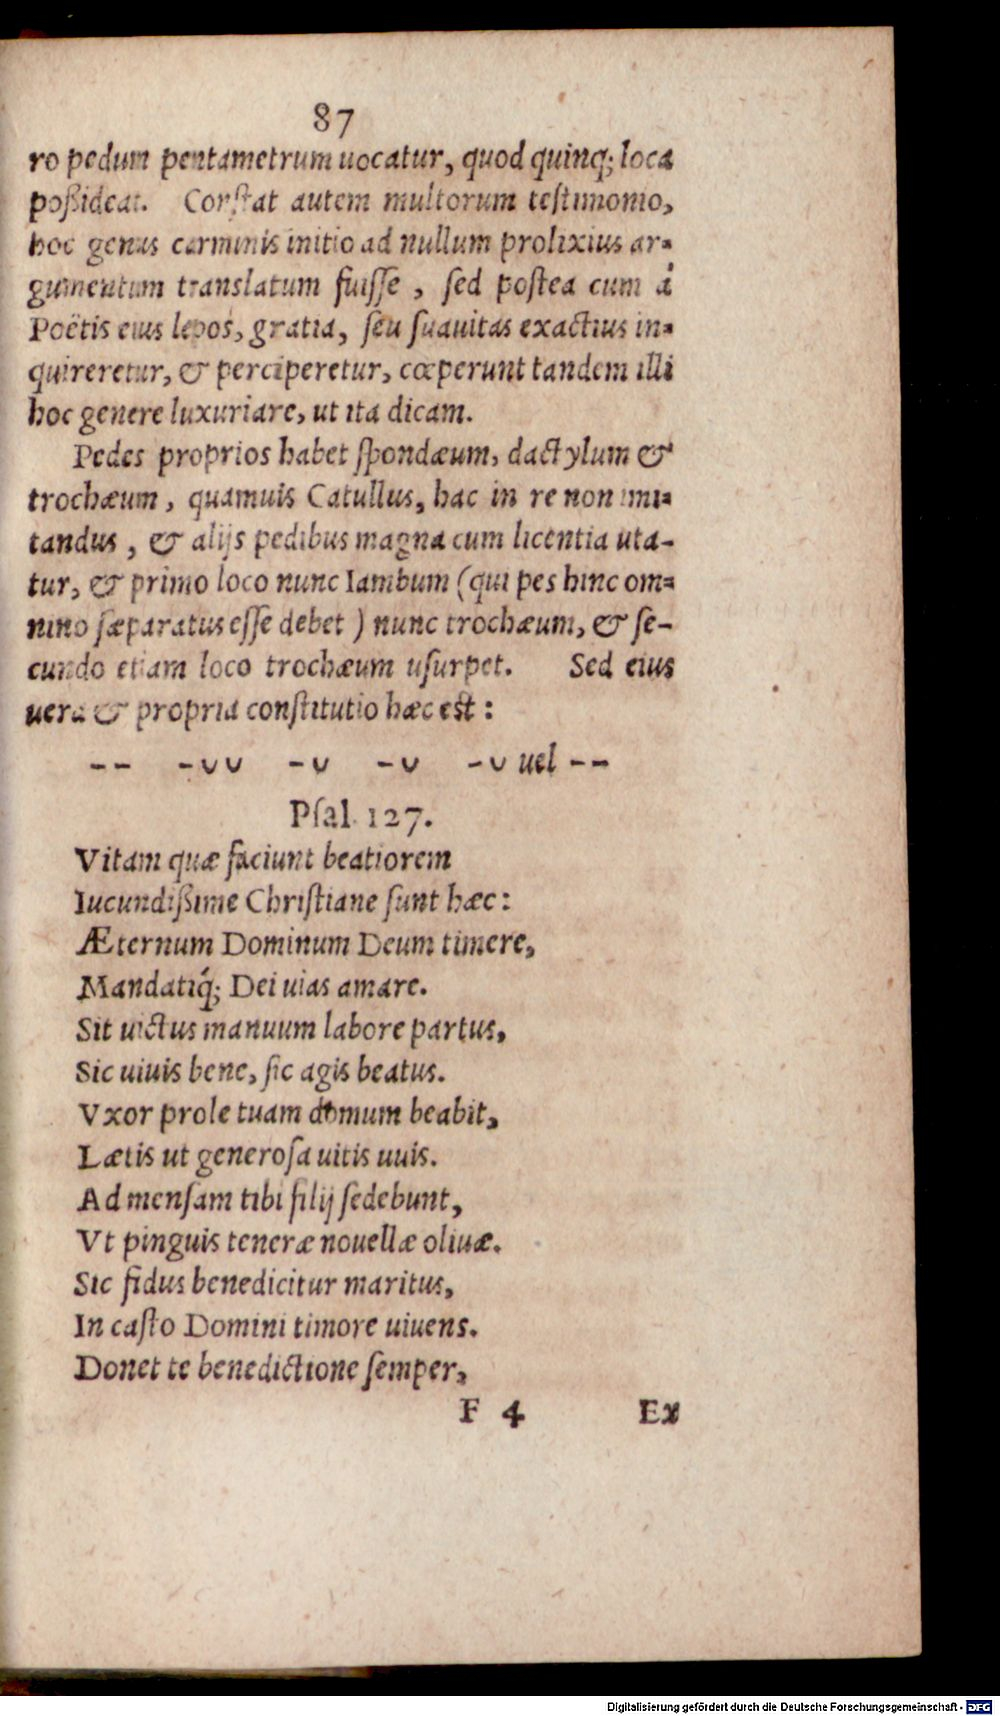 87
ro pedum pentametrum uocatur, quod quinq; loca
poßideat. Constat autem multorum testimonio,
hoc genus carminis initio ad nullum prolixius ar=
gumentum translatum fuisse, sed postea cum á
Poëtis eius lepos, gratia, seu suauitas exactius in=
quireretur, & perciperetur, cœperunt tandem illi
hoc genere luxuriare, ut ita dicam.
Pedes proprios habet spondæum, dactylum &
trochæum, quamuis Catullus, hac in re non imi=
tandus, & alijs pedibus magna cum licentia uta-
tur, & primo loco nunc Iambum (qui pes hinc om=
nino sæparatus esse debet) nunc trochæum, & se-
cundo etiam loco trochæum usurpet. Sed eius
uera & propria constitutio hæc est:
-- -υυ -υ -υ -υ uel --
Psal. 127.
Vitam quæ faciunt beatiorem
Iucundißime Christiane sunt hæc:
Æternum Dominum Deum timere,
Mandatiq́; Dei uias amare.
Sit uictus manuum labore partus,
Sic uiuis bene, sic agis beatus.
Vxor prole tuam domum beabit,
Lætis ut generosa uitis uuis.
Ad mensam tibi filij sedebunt,
Vt pinguis teneræ nouellæ oliuæ.
Sic fidus benedicitur maritus,
In casto Domini timore uiuens.
Donet te benedictione semper,
F 4 Ex
Digitalisierung gefördert durch die Deutsche Forschungsgemeinschaft - DFG